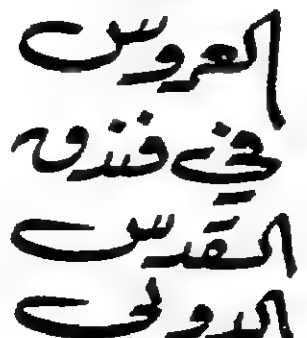 العروس
في فندق
القدس
الدولي